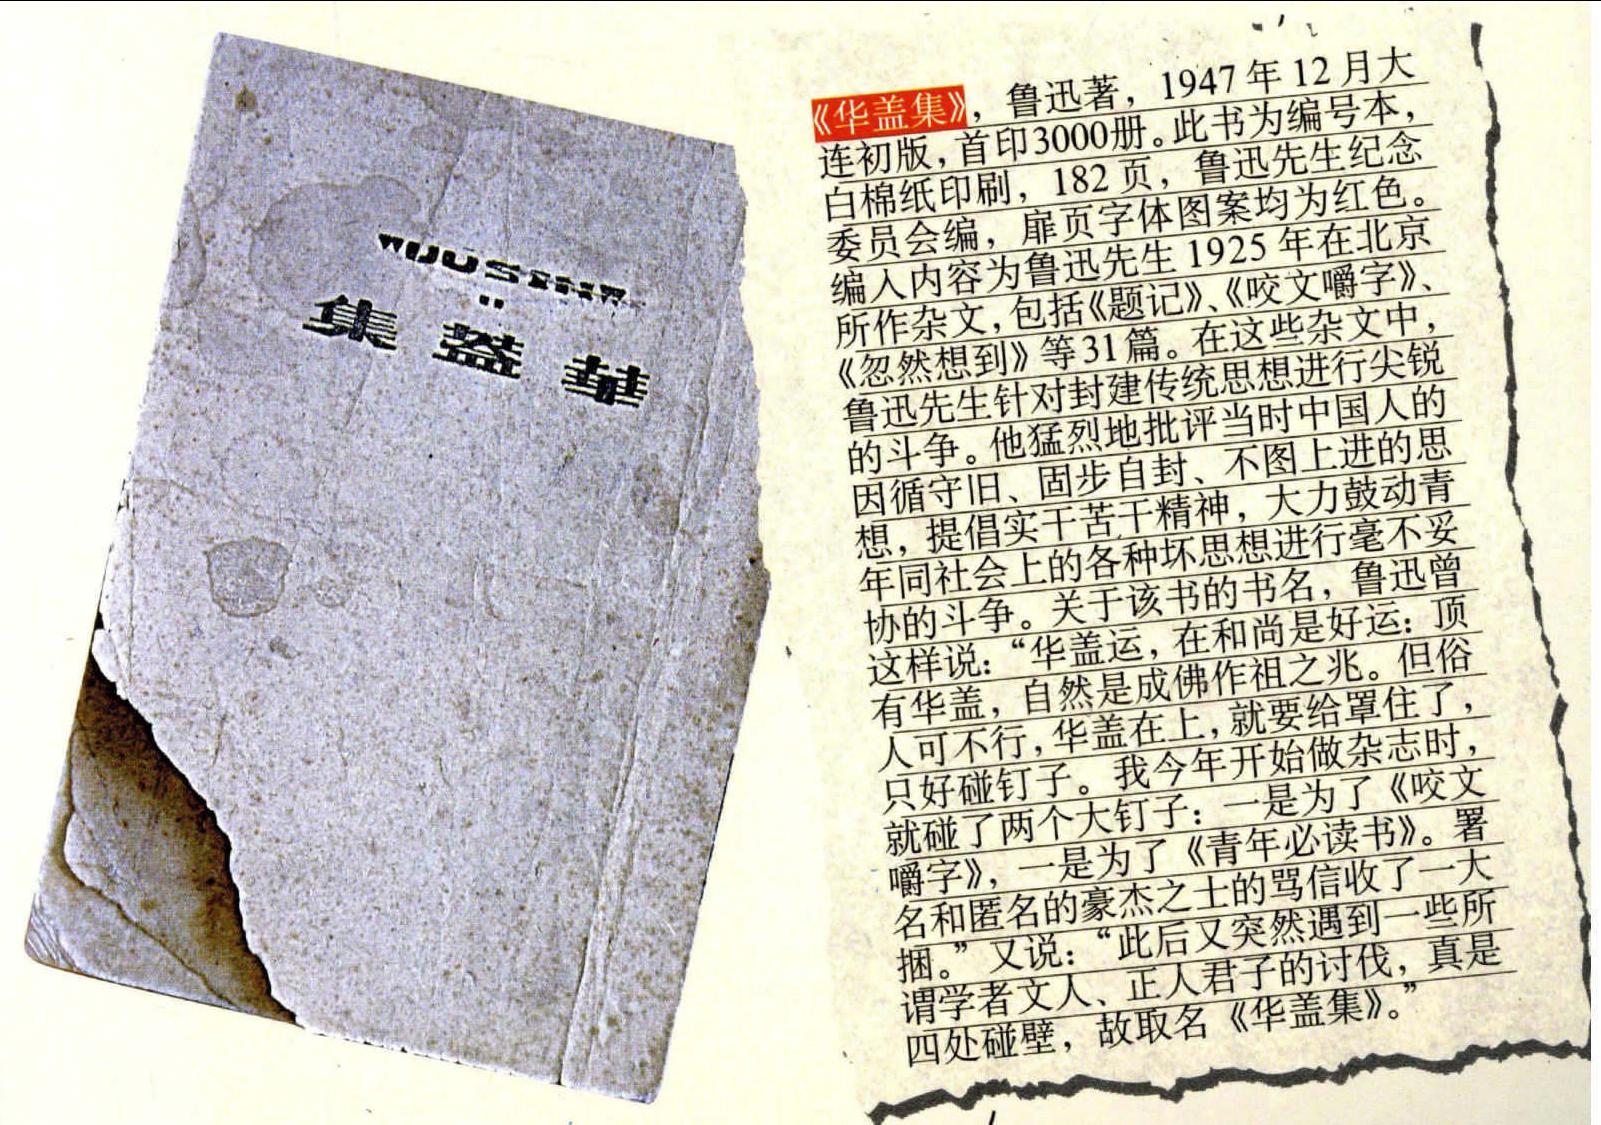 集盖華
《华盖集》，鲁迅著，1947年12月大
连初版，首印3000册。此书为编号本，
白棉纸印刷，182页，鲁迅先生纪念
委员会编，扉页字体图案均为红色。
编入内容为鲁迅先生1925年在北京
所作杂文，包括《题记》、《咬文嚼字》、
《忽然想到》等31篇。在这些杂文中，
鲁迅先生针对封建传统思想进行尖锐
的斗争。他猛烈地批评当时中国人的
因循守旧、固步自封、不图上进的思
想，提倡实干苦干精神，大力鼓动青
年同社会上的各种坏思想进行毫不妥
协的斗争。关于该书的书名，鲁迅曾
这样说：“华盖运，在和尚是好运：顶
有华盖，自然是成佛作祖之兆。但俗
人可不行，华盖在上，就要给罩住了，
只好碰钉子。我今年开始做杂志时，
就碰了两个大钉子：一是为了《咬文
嚼字》，一是为了《青年必读书》。署
名和匿名的豪杰之士的骂信收了一大
捆。”又说：“此后又突然遇到一些所
谓学者文人、正人君子的讨伐，真是
四处碰壁，故取名《华盖集》。”